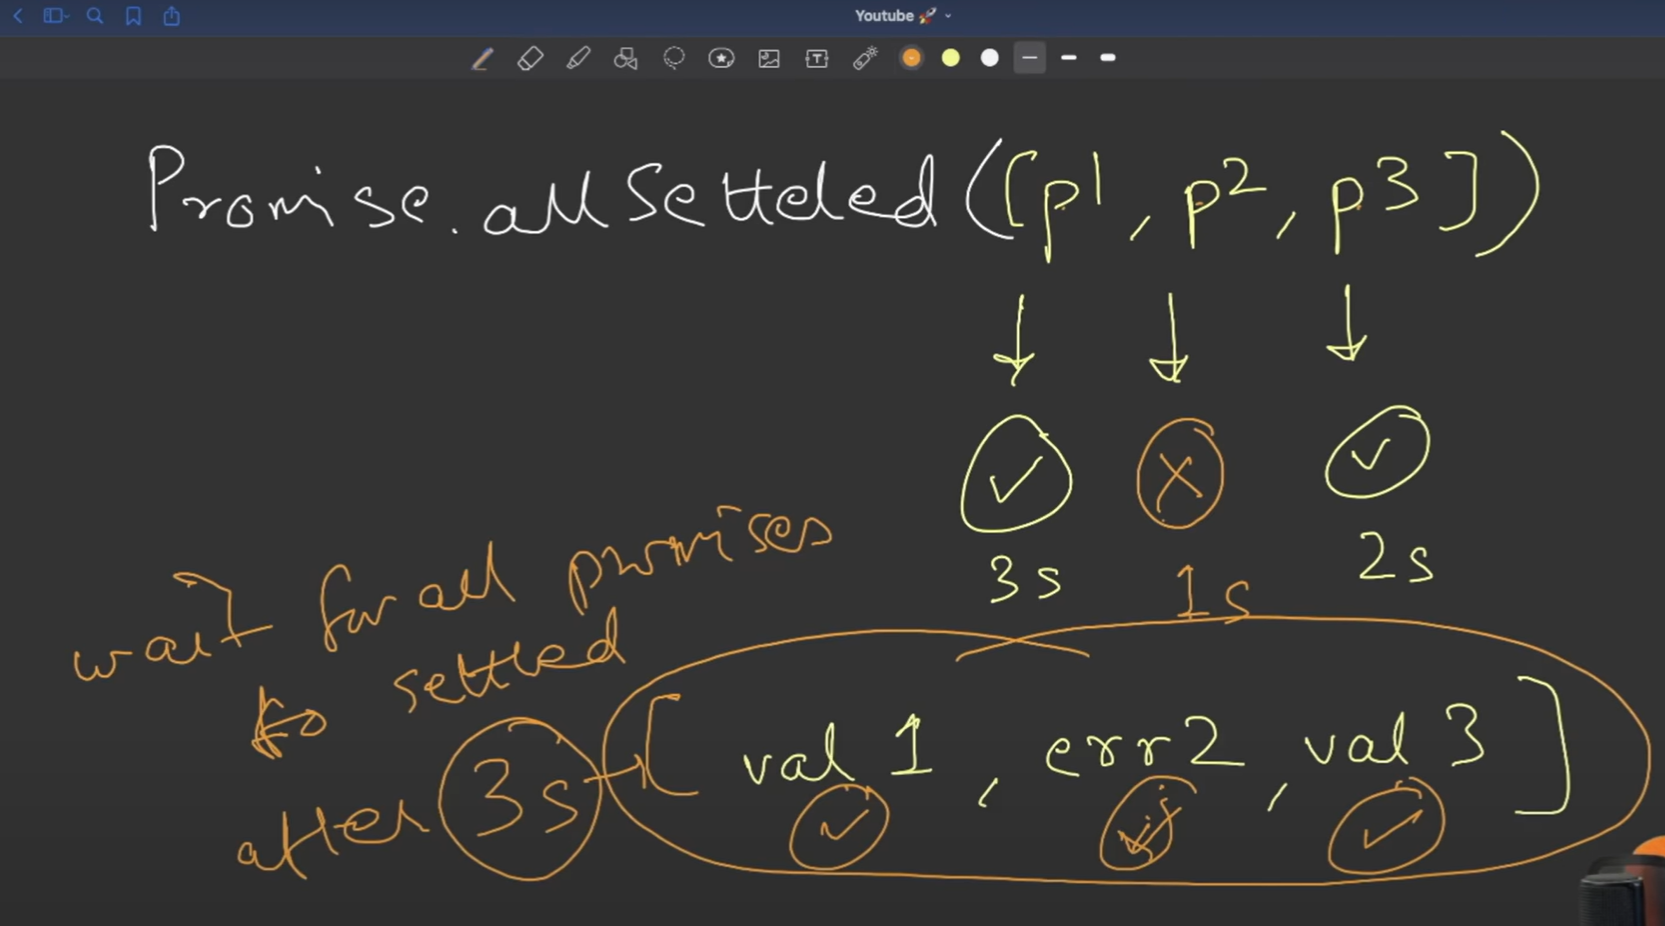 Youtube 🚀
Promise.allSettled([p1, p2, p3])
3s 1s 2s
wait for all promises
to settled
after 3s → [val 1, err2, val 3]